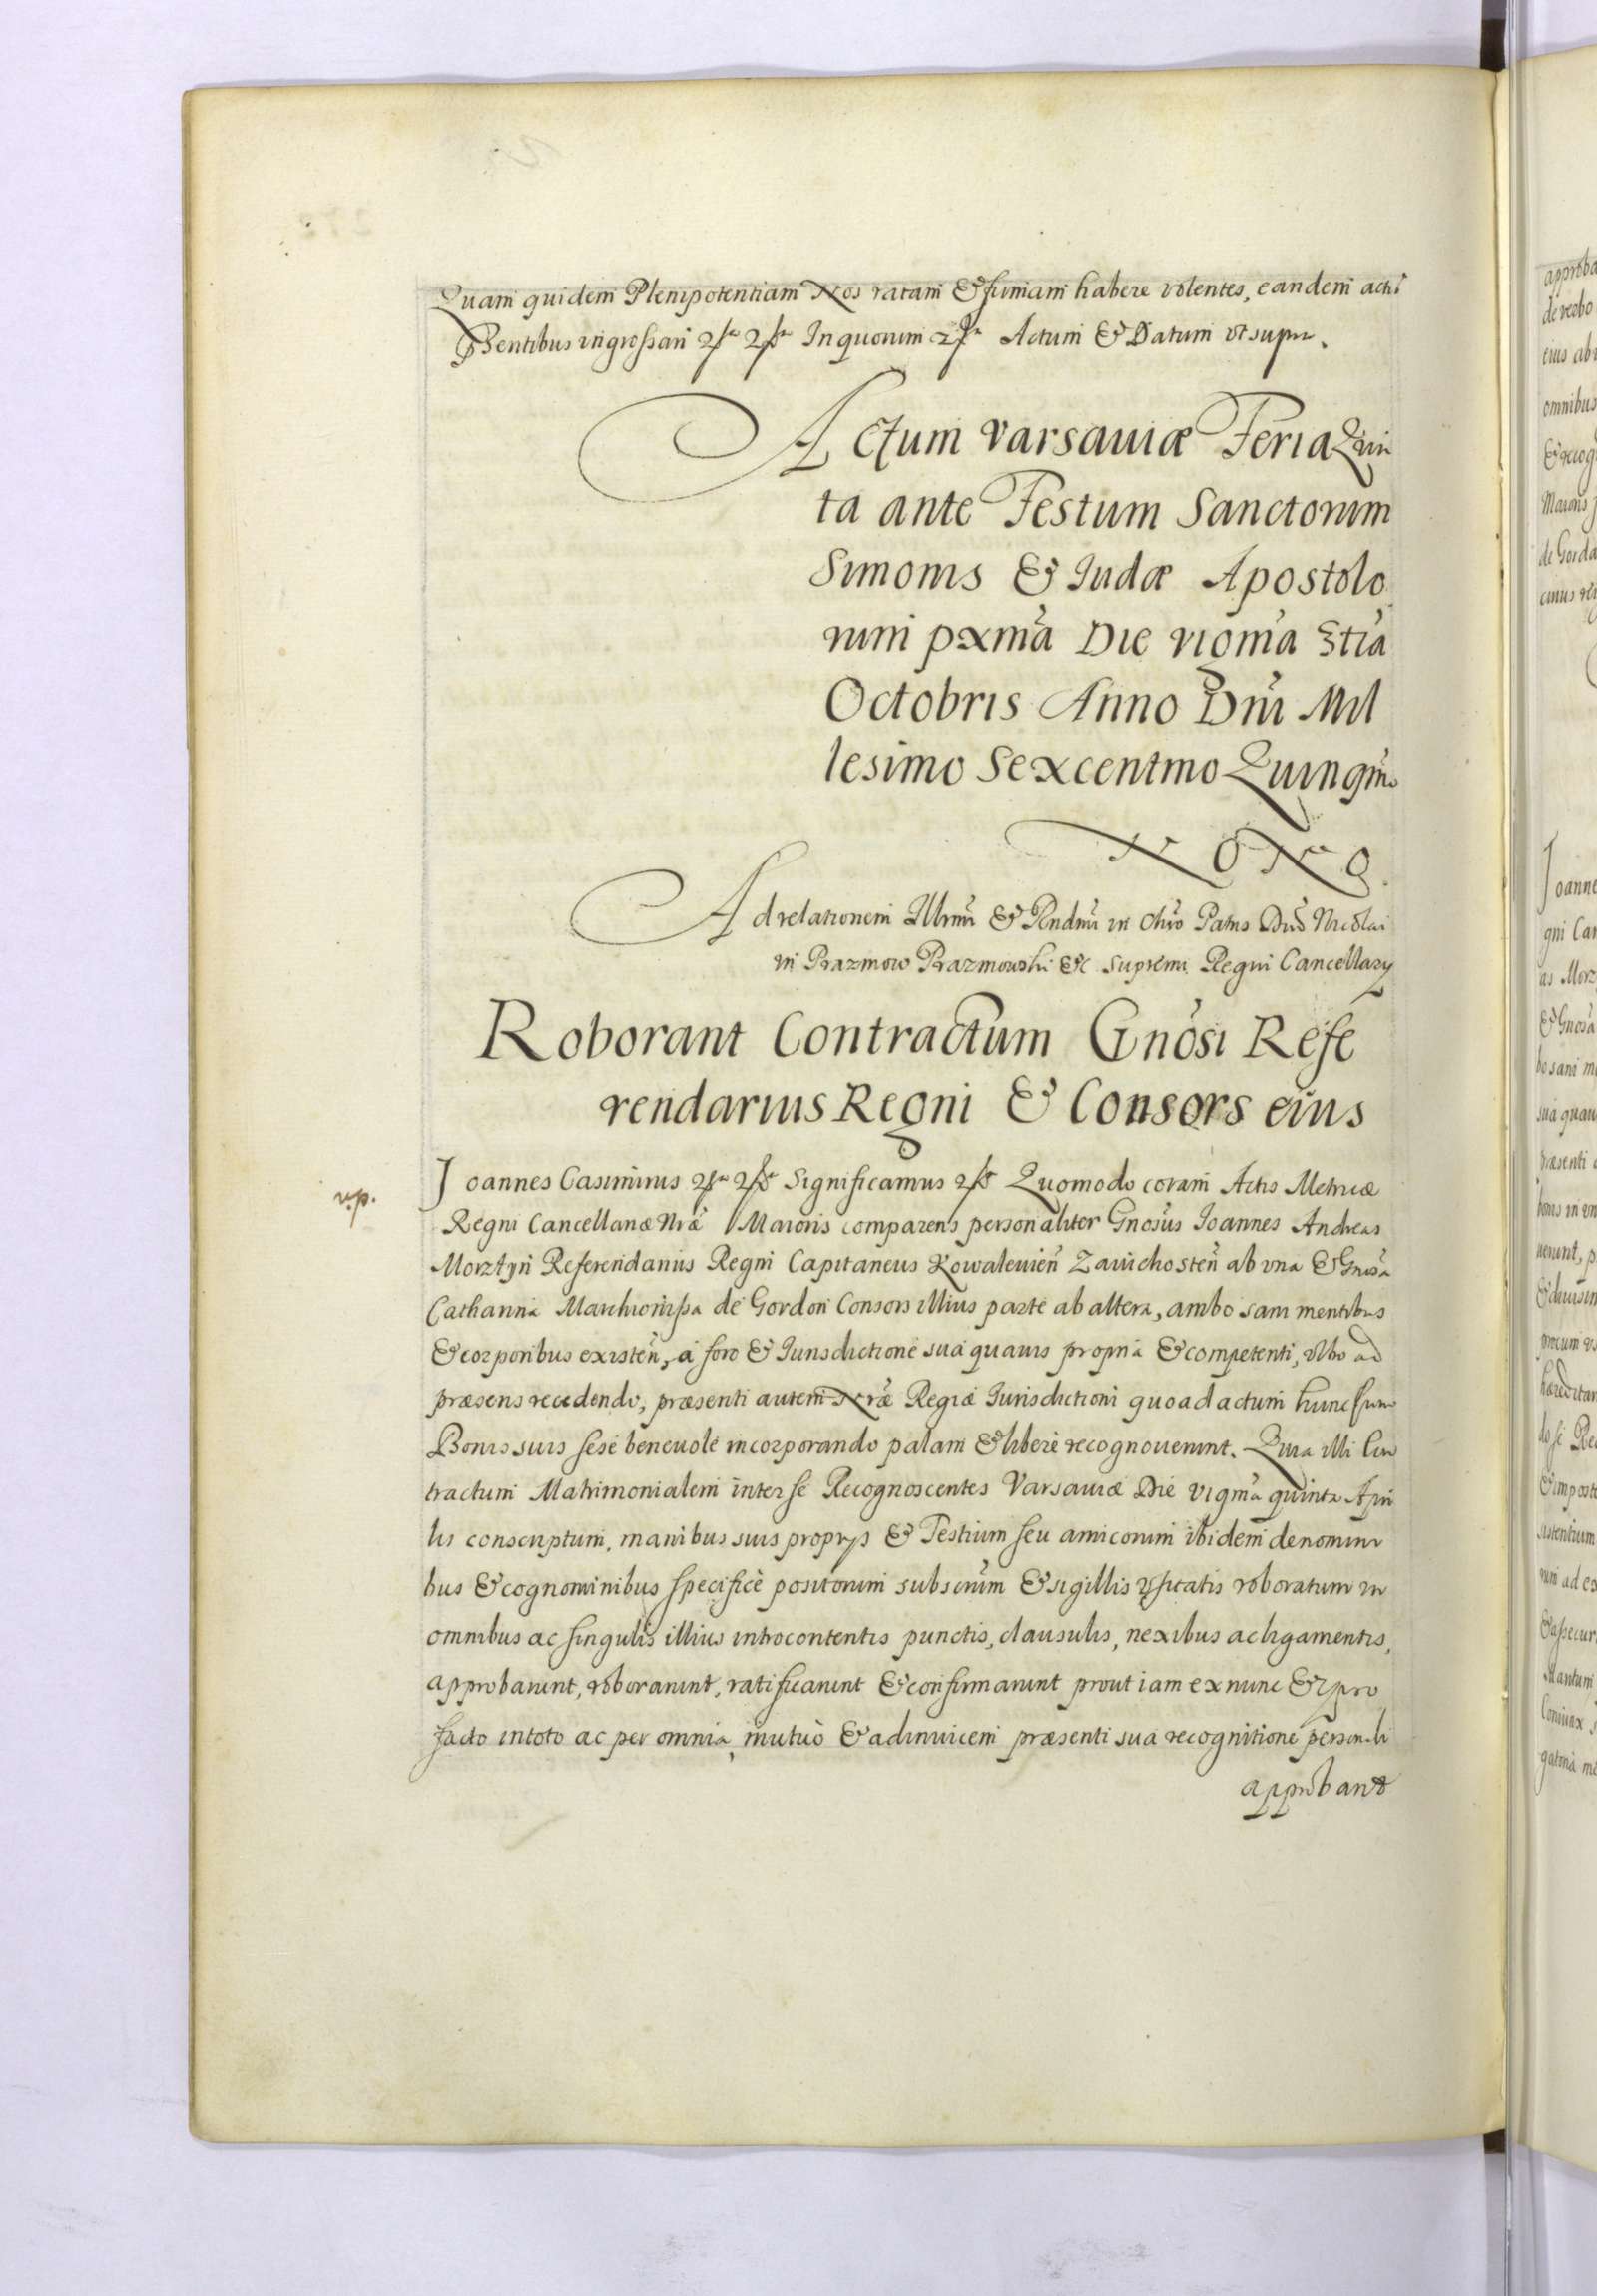 Quam quidem Plenipotentiam Nos ratam & firmam habere volentes, eandem actis
pñtibus ingrossari In quorum Actum & Datum vt supra.
Actum Varsauiæ Feria Quin
ta ante Festum Sanctorum
Simonis & Iudæ Apostolo
rum pxm̃a Die vigm̃a 3tia
Octobris Anno Dñi Mil
lesimo Sexcentmo Quinqm̃o
Nono.
Ad relationem Illmi & Rndmi in Chro Patris Dñi Nicolai
in Prazmow Prazmowski &c Supremi Regni Cancellarij
Roborant Contractum Gnosi Refe
rendarius Regni & Consors eius
r.p.
Ioannes Casimirus Significamus Quomodo coram Actis Metricæ
Regni Cancellariæ Nræ Maioris comparens personaliter Gnosus Ioannes Andreas
Morztyn Referendarius Regni Capitaneus Kowalevien̄ Zavichosten̄ ab vna & Gnosa
Catharina Marchionissa de Gordon Consors illius parte ab altera, ambo sani mentibus
& corporibus existen̄, à foro & Iurisdictione sua quauis propria & competenti, vltro ad
præsens recedendo, præsenti autem Nræ Regiæ Iurisdictioni quo ad actum hunc cum
Bonis suis sese beneuolè incorporando palam & liberè recognouerunt. Quia illi Con
tractum Matrimonialem inter se Recognoscentes Varsauiæ Die vigm̃a quinta Apri
lis conscriptum, manibus suis proprijs & Testium seu amicorum ibidem de nomini
bus & cognominibus specificè positorum subscrium & sigillis vsitatis roboratum in
omnibus ac singulis illius introcontentis punctis, clausulis, nexibus ac ligamentis,
approbarunt, roborarunt, ratificarunt & confirmarunt prout iam ex nunc & ipso
facto in toto ac per omnia, mutuò & adinuicem præsenti sua recognitione personali
approbant